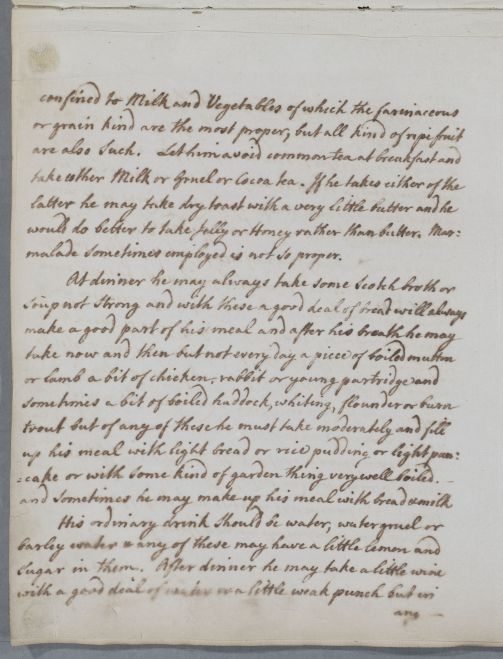 confined to Milk and Vegetables of which the farinaceous
or grain kind are the most proper, but all kind of ripe fruit
are also such. Let him avoid common tea at breakfast and
take either Milk or Gruel or Cocoa tea. If he takes either of the
latter he may take dry toast with a very little butter and he
would do better to take Jelly or Honey rather than butter. Mar:
malade sometimes employed is not so proper.
At dinner he may always take some Scotch broth or
Soup not Strong and with these a good deal of bread will always
make a good part of his meal and after his broath he may
take now and then but not every day a piece of boiled mutton
or lamb a bit of chicken, rabbit or young partridge and
sometimes a bit of boiled haddock, whiting, flounder or burn
trout but of any of these he must take moderately and fill
up his meal with light bread or rice pudding or light pan:
=cake or with some kind of garden thing very well boiled.
and sometimes he may make up his meal with bread & milk
His ordinary drink should be water, water gruel or
barley water & any of these may have a little lemon and
Sugar in them. After dinner he may take a little wine
with a good deal of water or a little weak punch but in
any